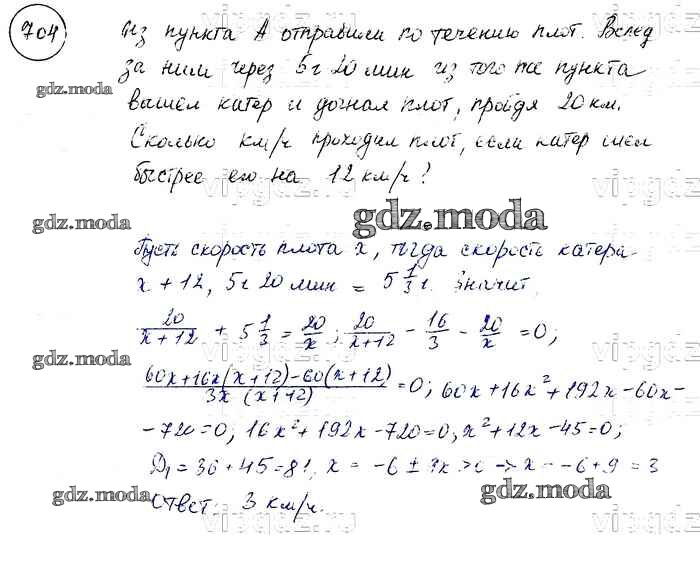 704
Из пункта А отправили по течению плот. Вслед
за ним через 5 г 20 мин из того же пункта
вышел катер и догнал плот, пройдя 20 км.
Сколько км/ч проходил плот, если катер шел
быстрее его на 12 км/ч?
Пусть скорость плота x, тогда скорость катера -
x + 12, 5 ч 20 мин = 5 1/3 ч. Значит,
20/(x+12) + 5 1/3 = 20/x; 20/(x+12) - 16/3 - 20/x = 0;
(60x+16x(x+12)-60(x+12))/(3x(x+12)) = 0; 60x+16x²+192x-60x-
-720=0; 16x²+192x-720=0, x²+12x-45=0;
D₁=36+45=81, x = -6 ± 9 x > 0 -> x = -6+9 = 3
Ответ. 3 км/ч.
gdz.moda
gdz.moda
gdz.moda
gdz.moda
gdz.moda
gdz.moda
gdz.moda
gdz.moda
vipgdz